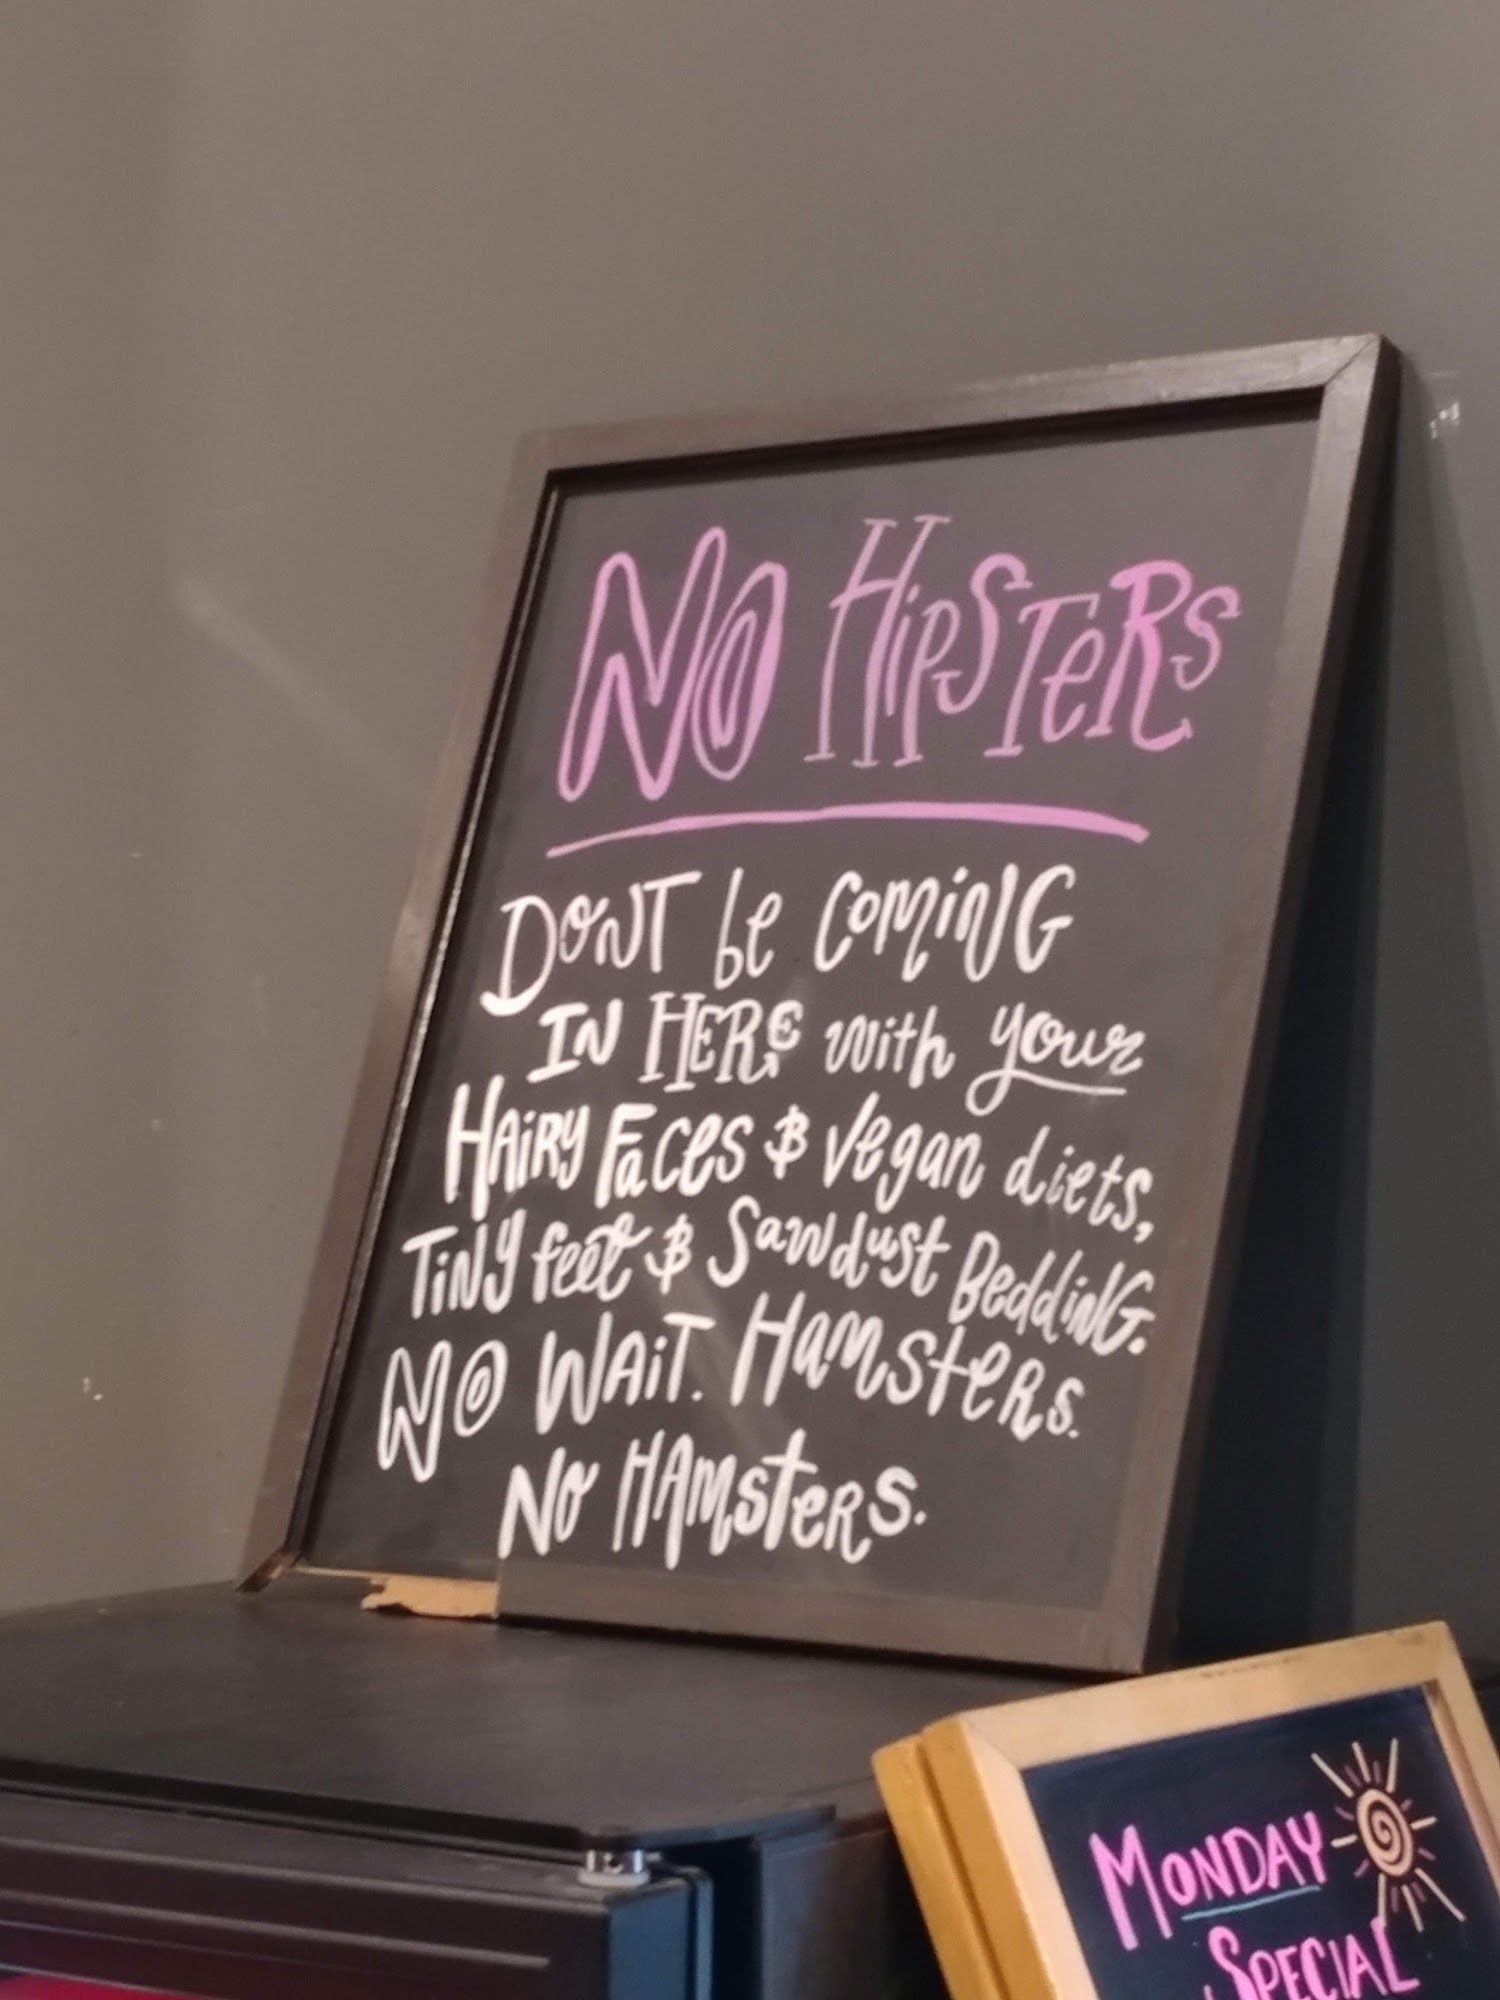 NO HipSTeRS
DONT be COMiNG
IN HERE with your
HAiRY FaCes & Vegan diets,
TiNY feet & Sawdust BeddiNG.
NO WAiT. HamsteRs.
No HAmsteRS.
MONDAY
SPECIAL